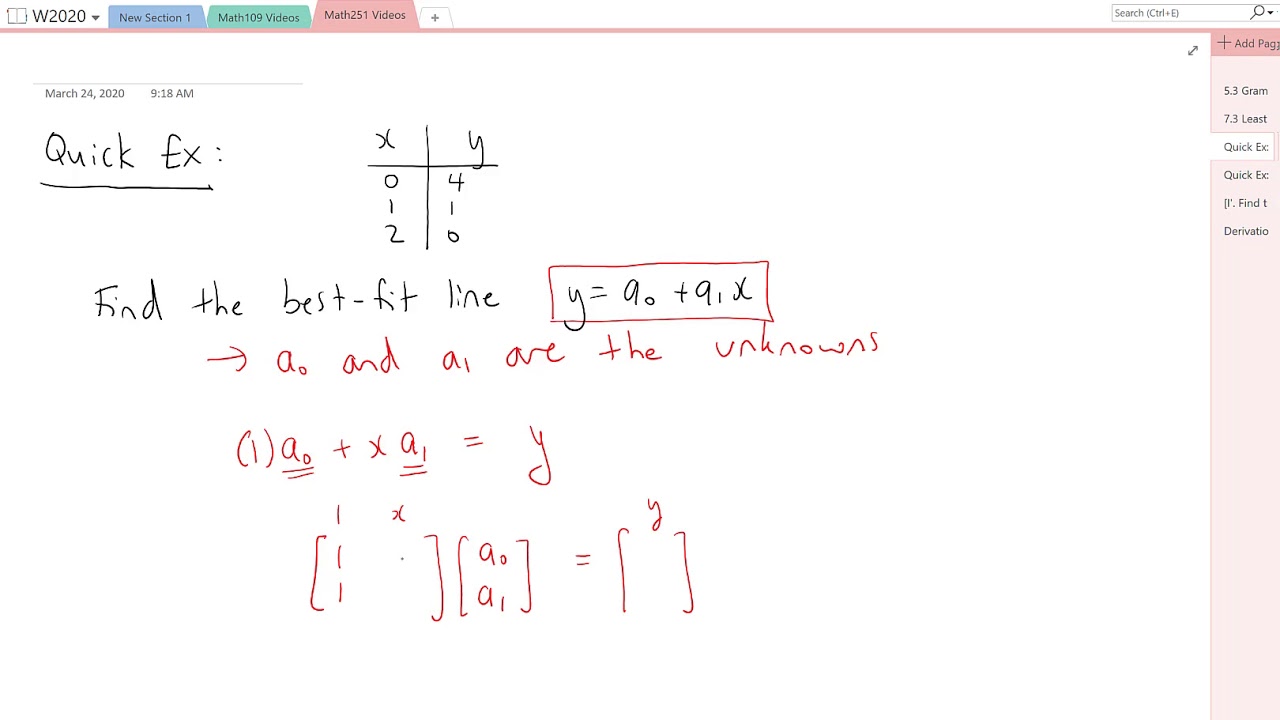 W2020 New Section 1 Math109 Videos Math251 Videos + Search (Ctrl+E)
+ Add Page
March 24, 2020 9:18 AM
5.3 Gram
7.3 Least
Quick Ex:
Quick Ex:
[I'. Find t
Derivatio
Quick Ex:
x y
0 4
1 1
2 0
Find the best-fit line y = a₀ + a₁x
→ a₀ and a₁ are the unknowns
(1)a₀ + x a₁ = y
1 x y
[1
1 ] [a₀
a₁] = [ ]